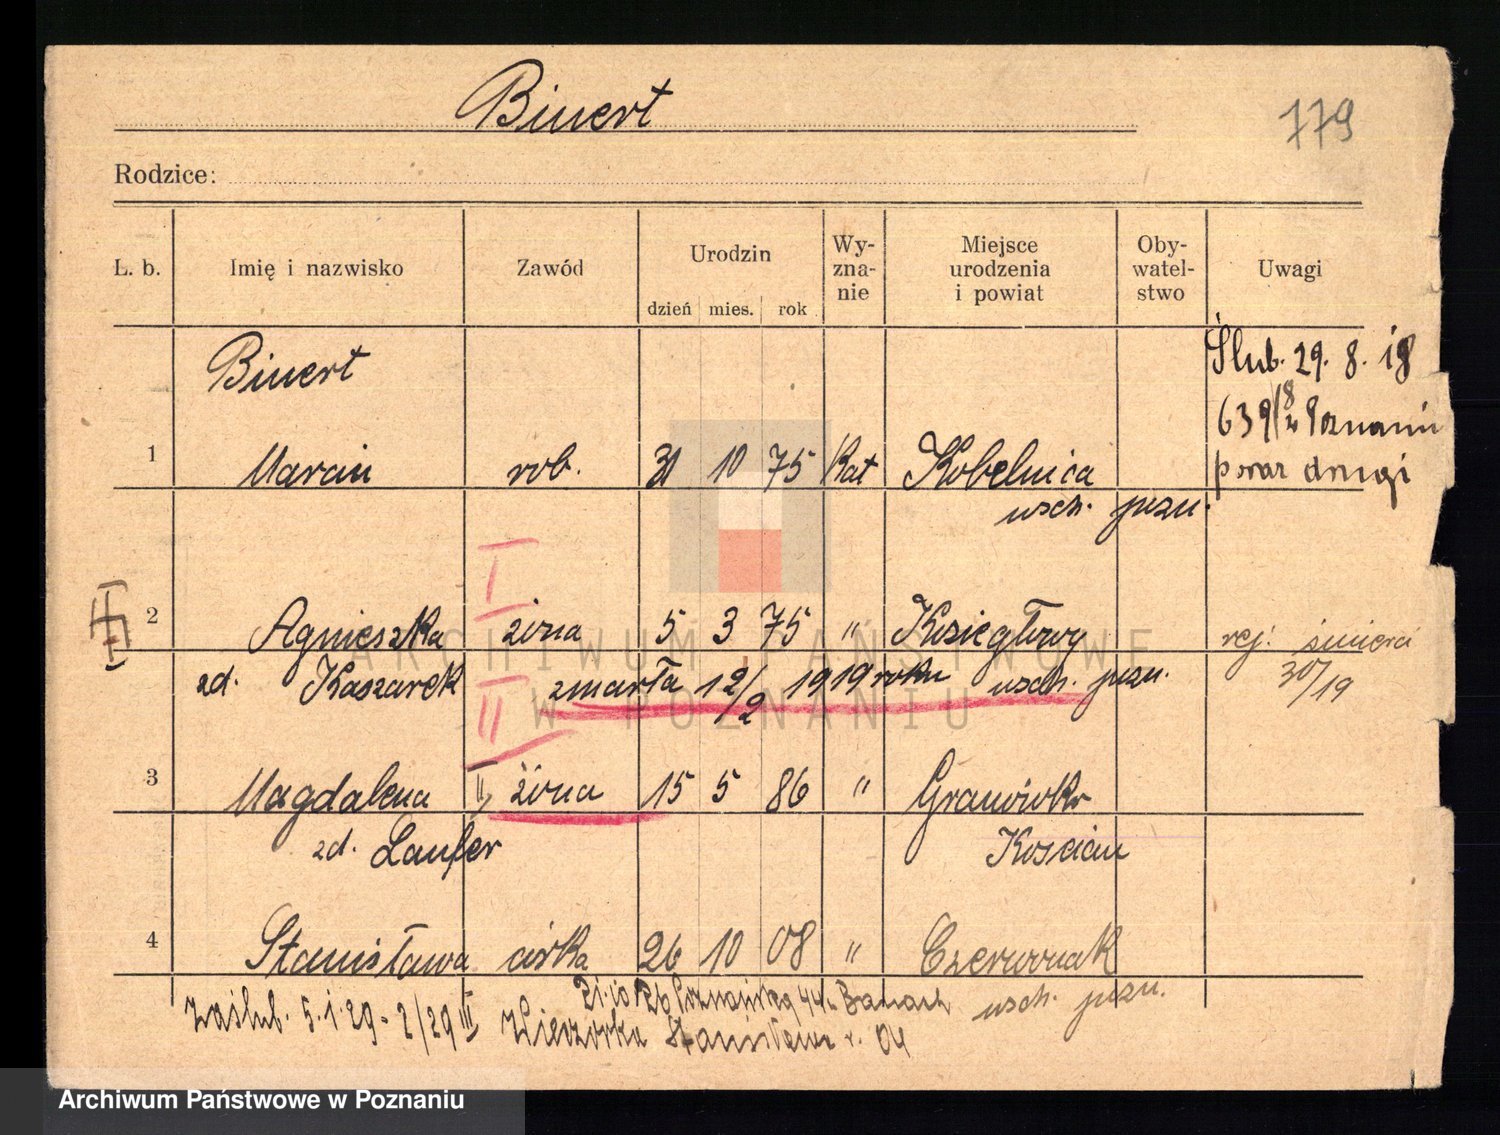 Binert
779
Rodzice:
L. b. Imię i nazwisko Zawód Urodzin dzień mies. rok Wy-zna-nie Miejsce urodzenia i powiat Oby-watel-stwo Uwagi
Binert
Ślub. 29. 8. 18
639/18 w Poznaniu
1 Marcin rob. 31 10 75 Kat Kobelnica poraz drugi
wsch. pozn.
I
2 Agnieszka żona 5 3 75 " Koziegłowy rej. śmierci
zd. Kaszarek zmarła 12/2 1919 roku wsch. pozn. 30/19
II
3 Magdalena II, żona 15 5 86 " Granówko
zd. Laufer Kościan
4 Stanisława córka 26 10 08 " Czerwonak
wsch. pozn.
21.10 26 Poznańska 44 Banach
Zaślub. 5.1.29 - 2/29 III Wieczorka Stanisław r. 04
ARCHIWUM PAŃSTWOWE
W POZNANIU
Archiwum Państwowe w Poznaniu